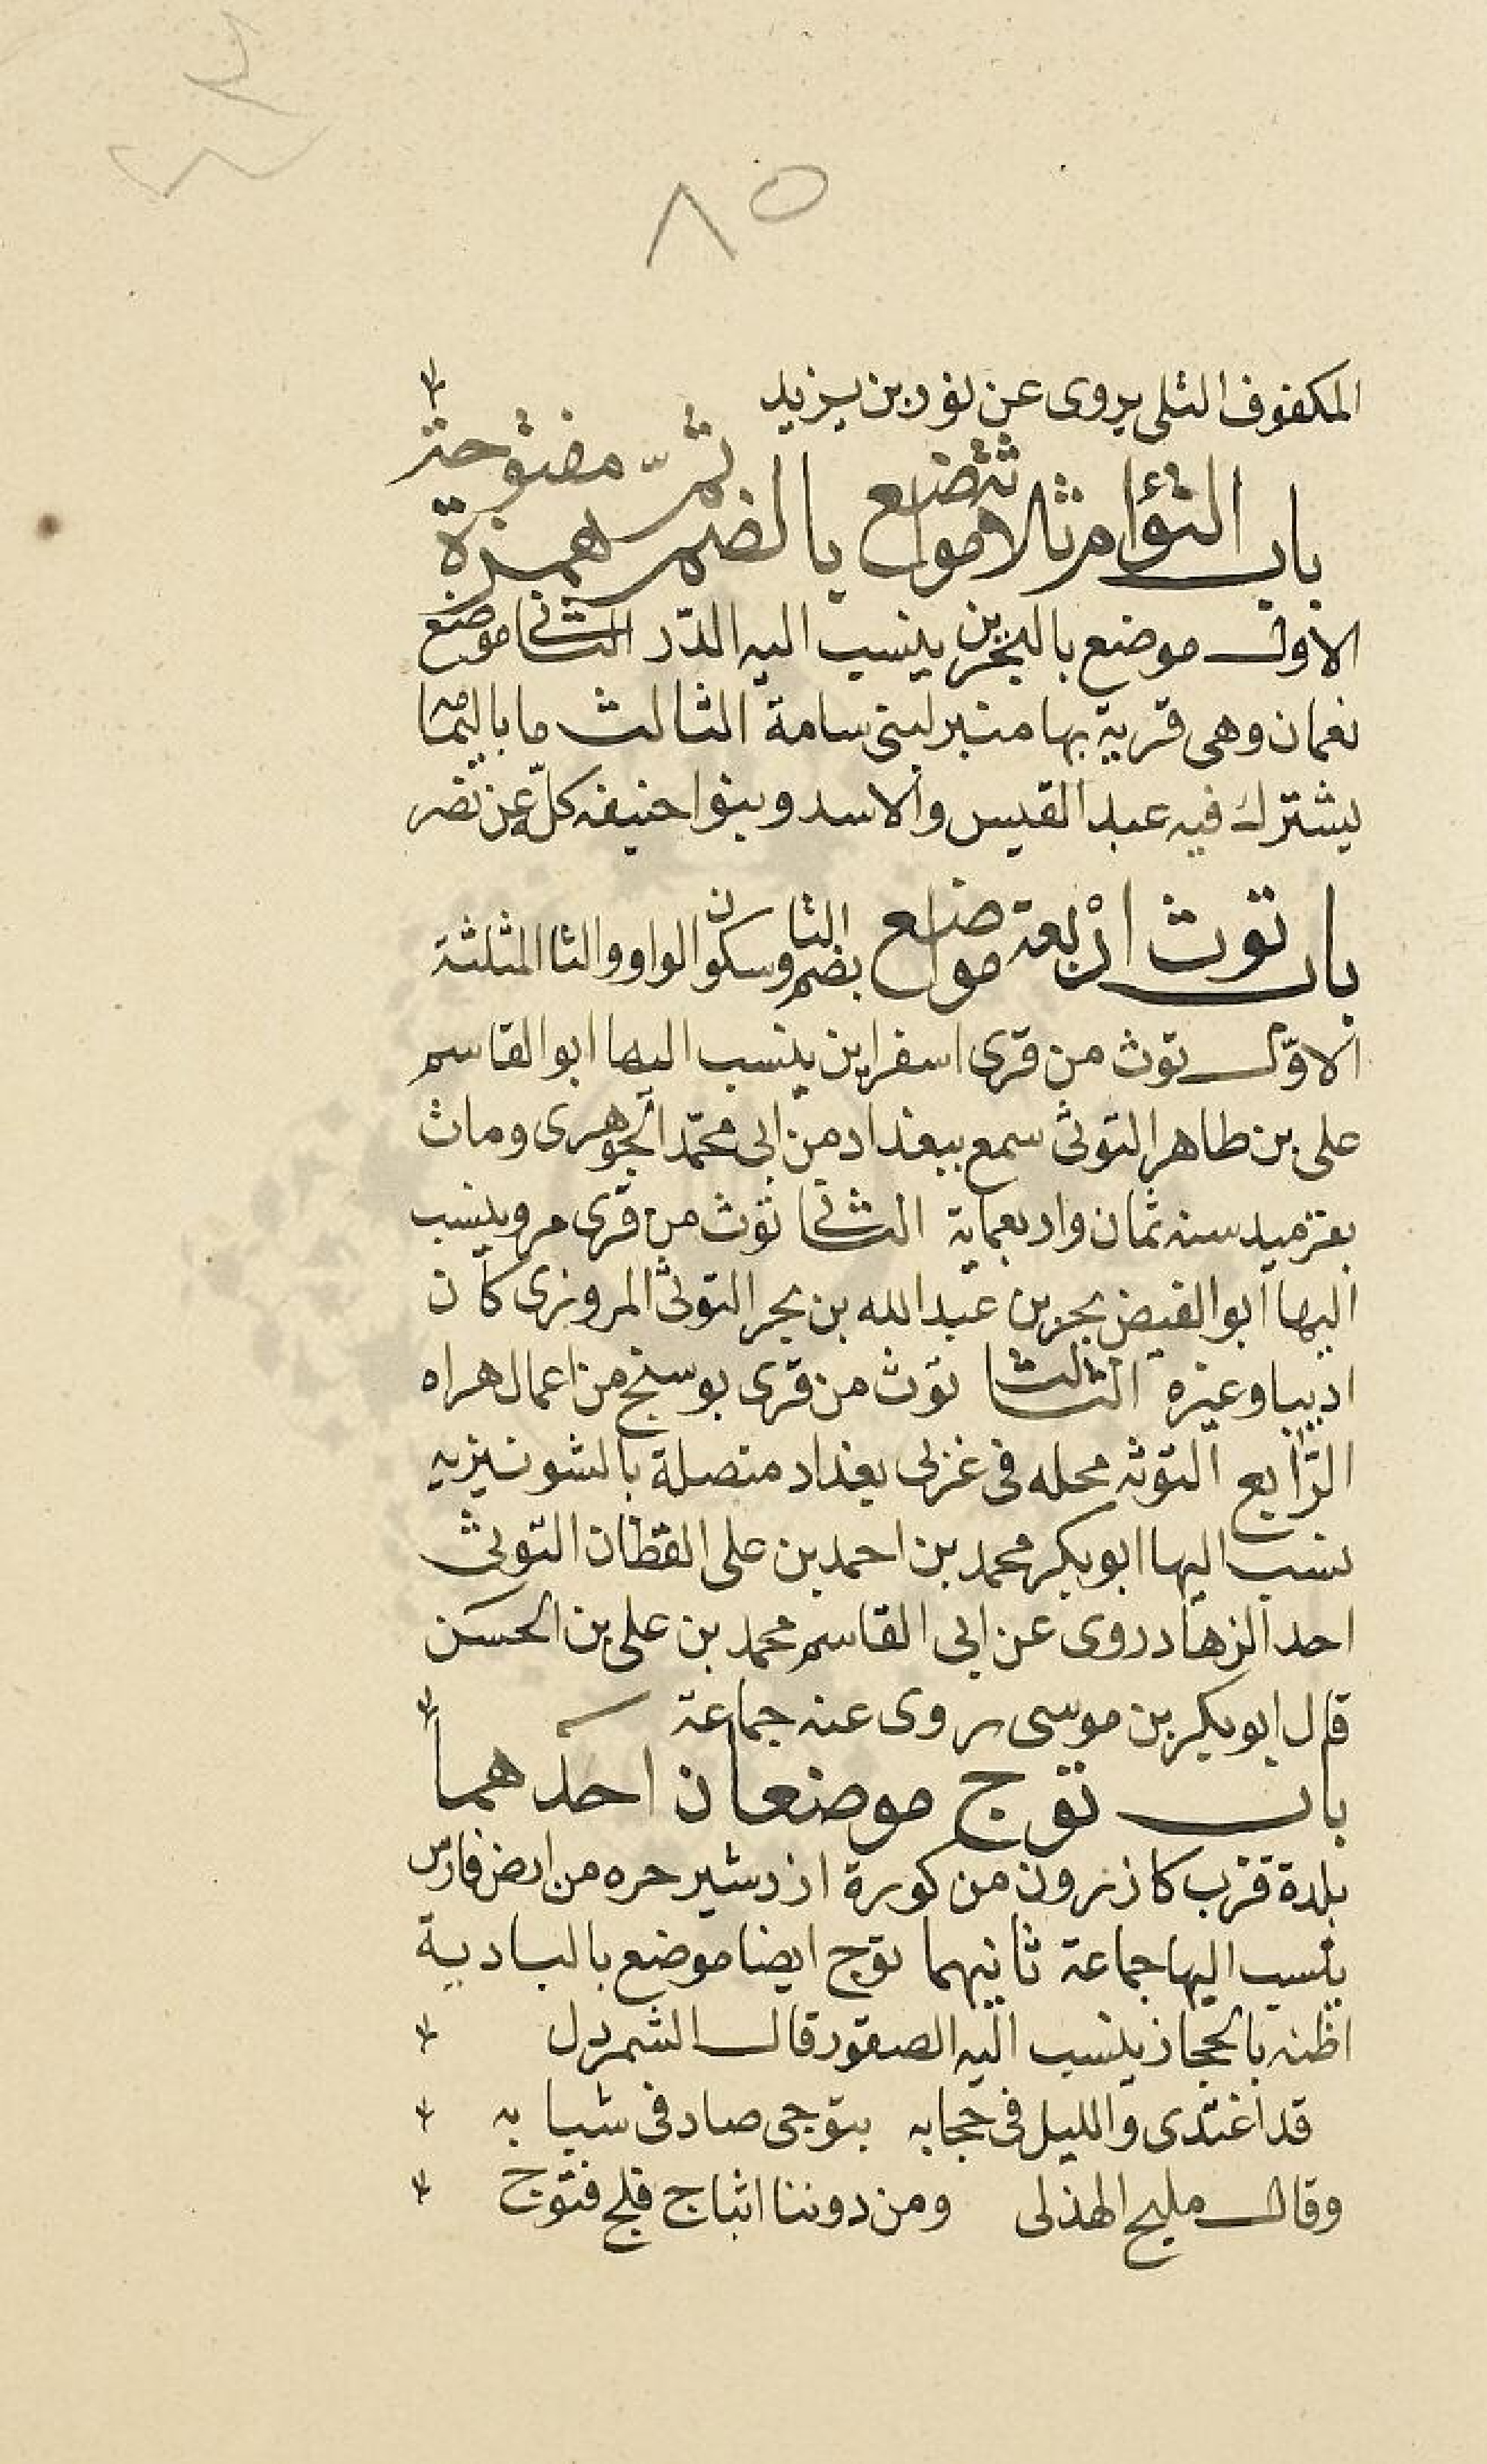 ٨٥
المكفوف التلى يروى عن ثور بن يزيد
باب التؤام ثلاثة مواضع بالضم ثمّ همزة مفتوحة
الاول موضع بالبحرين ينسب اليه الدّر الثانى موضع
بعمان وهى قرية بها منبر لبنى سامة الثالث ما باليمامة
يشترك فيه عبد القيس والاسد وبنوا حنيفه كلّه عن نصر
باب توث اربعة مواضع بضم التا وسكون الواو والثا المثلثة
الاوّل توث من قرى اسفراين ينسب اليها ابو القاسم
على بن طاهر التوثى سمع ببغداد من ابى محمّد الجوهرى ومات
سنه ثمان واربعماية الثانى توث من قرى مرو ينسب
اليها ابو الفيض بحر بن عبد الله بن بحر التوثى المروزى كان
اديبا وغيره الثالث توث من قرى بوسنج من اعمال هراه
الرّابع التوثه محله فى غربى بغداد متصلة بالشونيزيه
نسب اليها ابو بكر محمد بن احمد بن على القطان التوثى
احد الزهاد روى عن ابى القاسم محمد بن على بن الحسن
قال ابو بكر بن موسى روى عنه جماعة
باب توج موضعان احدهما
بلدة قرب كازرون من كورة اردشير حره من ارض فارس
ينسب اليها جماعة ثانيهما توج ايضا موضع بالبادية
اظنه بالحجاز ينسب اليه الصقور قال الشمردل
قد اغتدى والليل فى حجابه بتوجى صاد فى شبابه
وقال مليح الهذلى ومن دوننا اثباج فلج فتوج